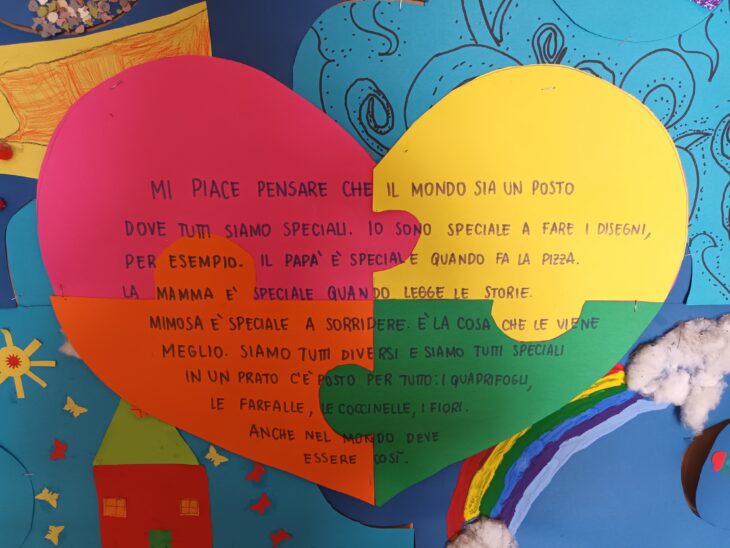 MI PIACE PENSARE CHE IL MONDO SIA UN POSTO
DOVE TUTTI SIAMO SPECIALI. IO SONO SPECIALE A FARE I DISEGNI,
PER ESEMPIO. IL PAPA' E' SPECIALE QUANDO FA LA PIZZA.
LA MAMMA E' SPECIALE QUANDO LEGGE LE STORIE.
MIMOSA E' SPECIALE A SORRIDERE. E' LA COSA CHE LE VIENE
MEGLIO. SIAMO TUTTI DIVERSI E SIAMO TUTTI SPECIALI
IN UN PRATO C'E' POSTO PER TUTTO: I QUADRIFOGLI,
LE FARFALLE, LE COCCINELLE, I FIORI.
ANCHE NEL MONDO DEVE
ESSERE COSÌ.